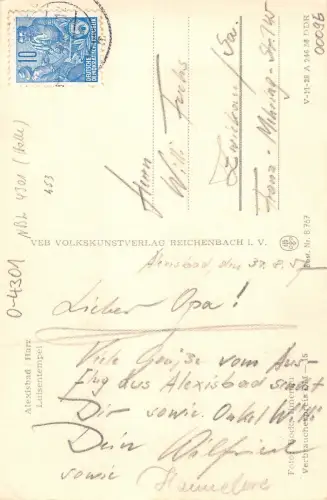 10
DEUTSCHE
DEMOKRATISCHE REPUBLIK
Herrn
Willi Fuchs
Zwickau/Sa.
Franz-Mehring-Str.
V-11-28 A 346 56 DDR
00096
NBL 4301 (Halle)
453
0-4301
VEB VOLKSKUNSTVERLAG REICHENBACH I. V.
Best. Nr. B 757
Alexisbad Harz
Luisentempel
Alexisbad, den 30. 8. 57
Lieber Opa!
Viele Grüße vom Aus-
flug aus Alexisbad sendet
Dir sowie Onkel Willi
Dein Wilfried
sowie Hannelore